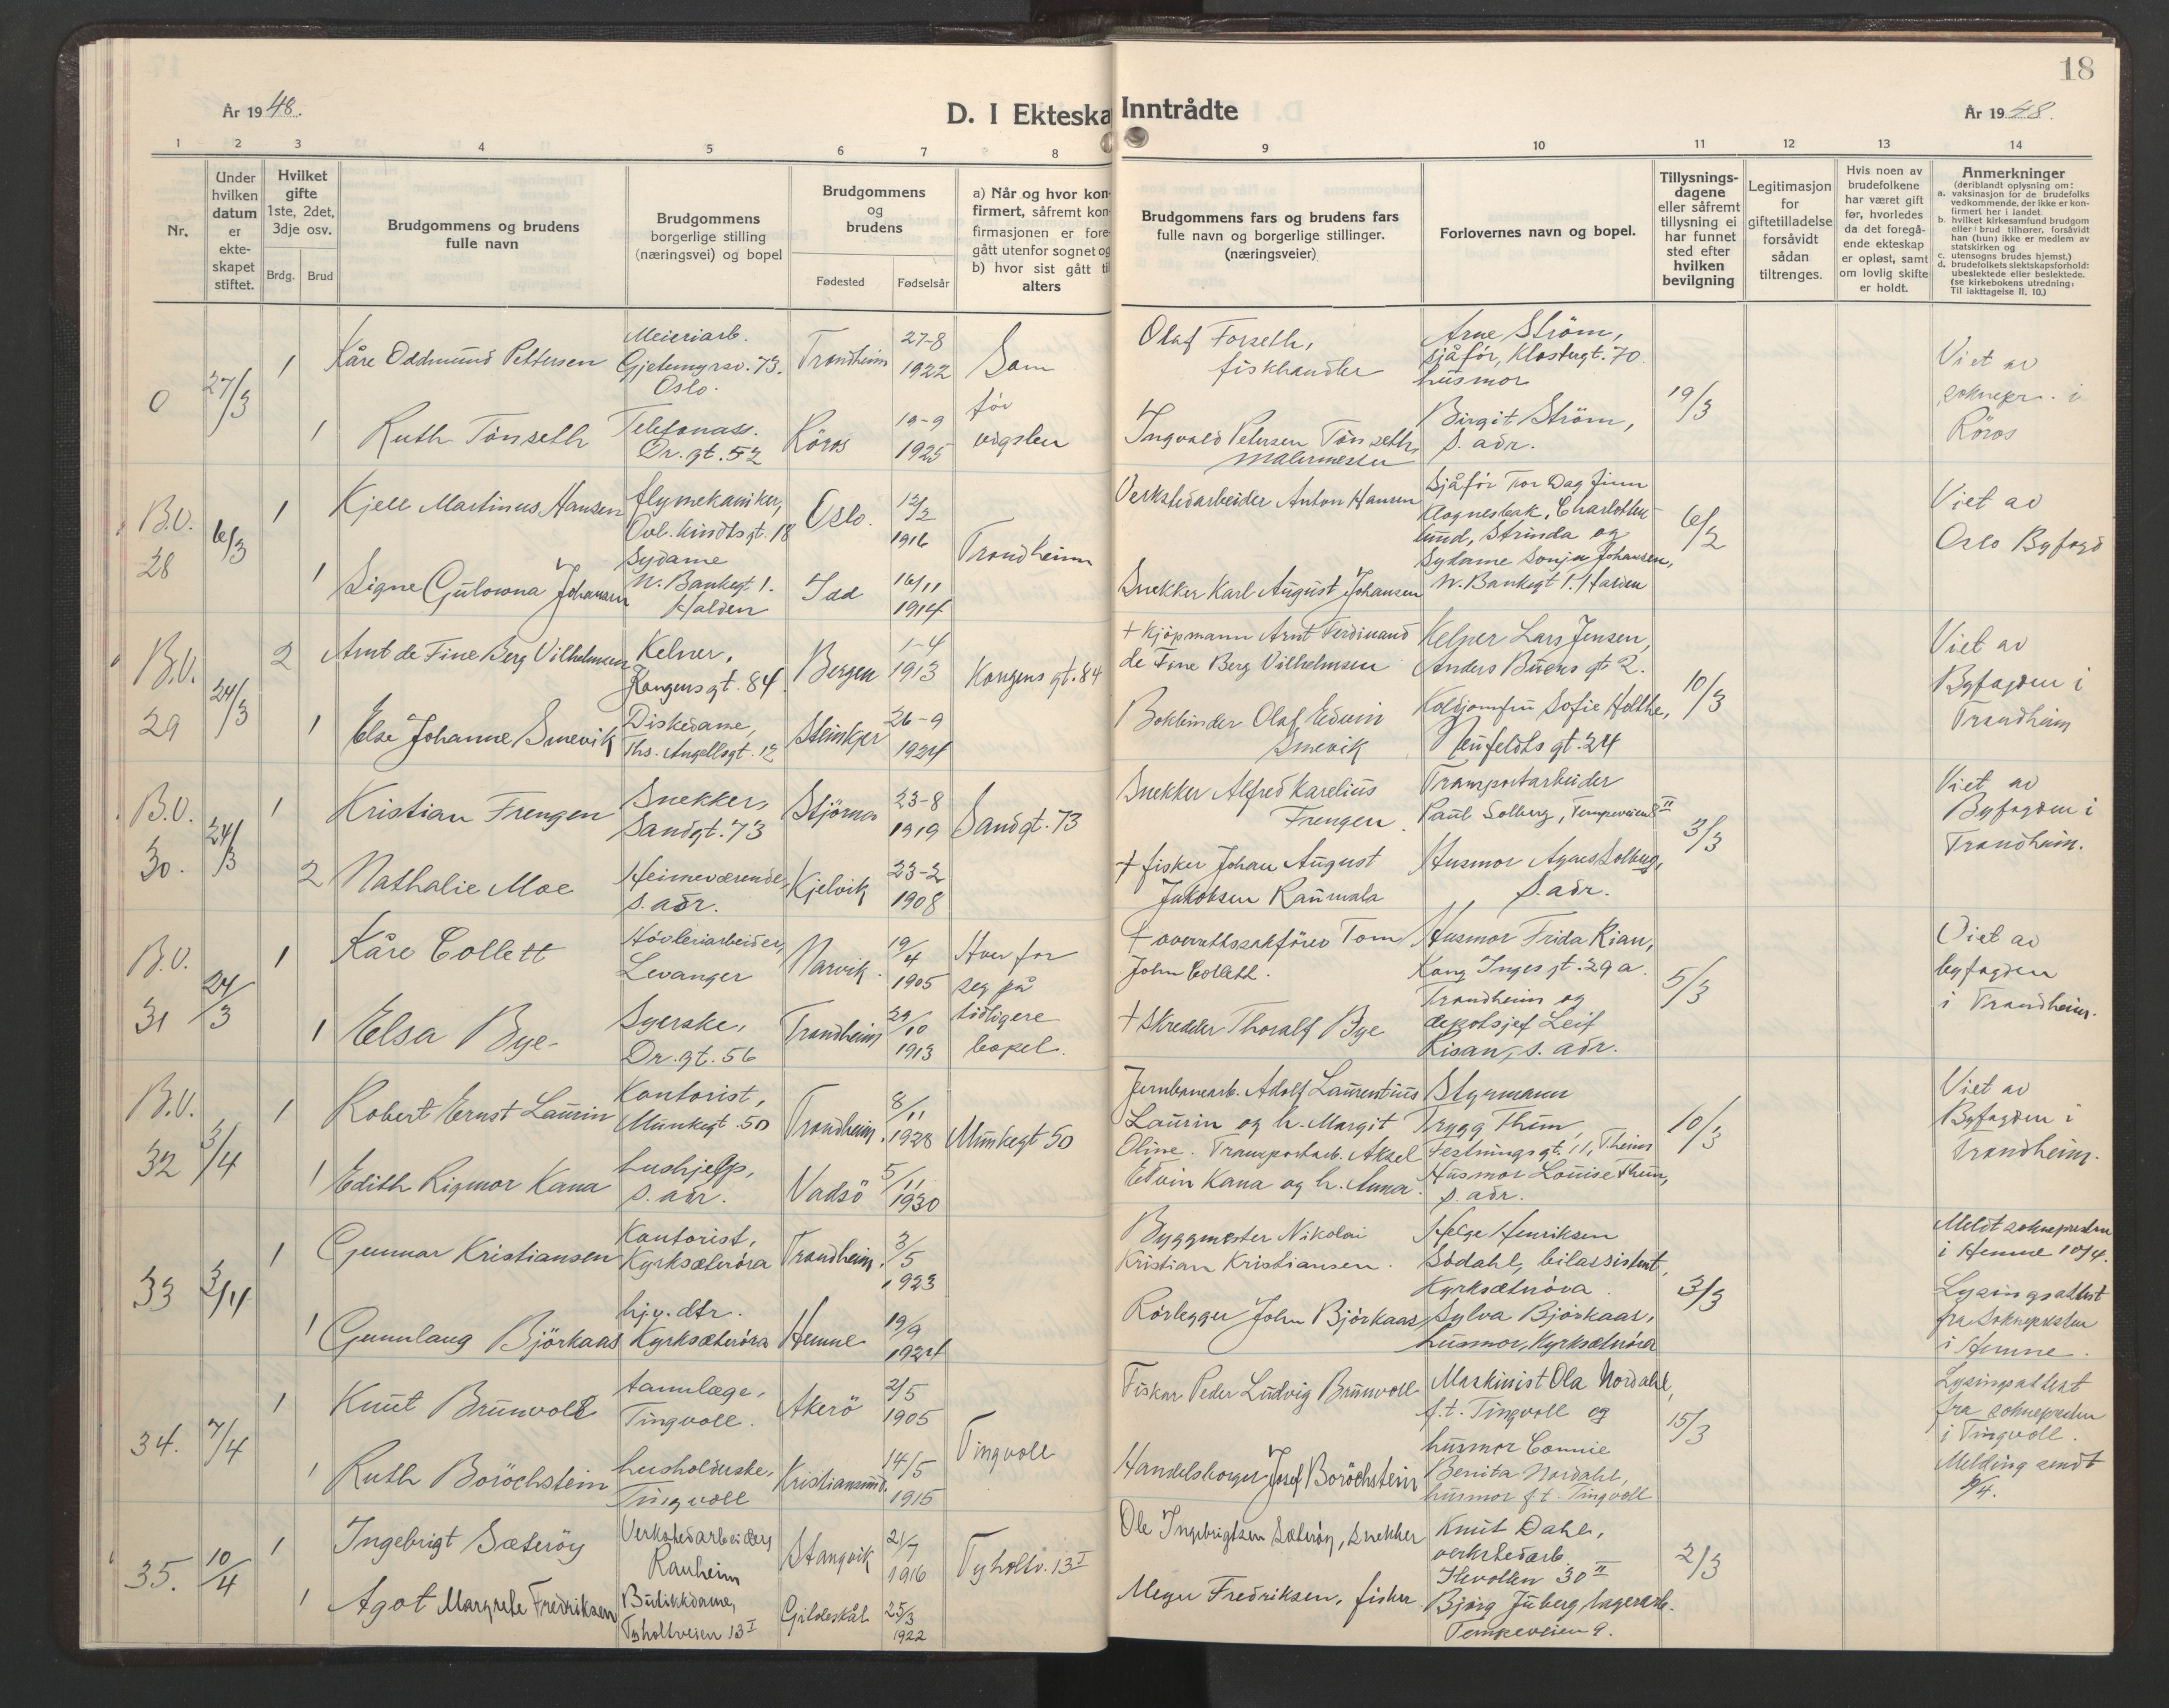 År 1948.
D. I Ekteska
1 2 3 4 5 6 7 8
Nr.
Under hvilken datum er ekte-skapet stiftet.
Hvilket gifte 1ste, 2det, 3dje osv.
Brdg. Brud
Brudgommens og brudens fulle navn
Brudgommens borgerlige stilling (næringsvei) og bopel
Brudgommens og brudens
Fødested Fødselsår
a) Når og hvor kon-
firmert, såfremt kon-
firmasjonen er fore-
gått utenfor sognet og
b) hvor sist gått til
alters
0 27/3
1 Kåre Oddmund Pettersen
Meieriarb.
Gjetemyrsv. 73.
Oslo.
Trondheim
27-8
1922
Som
før
vigslen
1 Ruth Tönseth
Telefonass.
Dr. gt. 52
Röros
1925
B.V.
28
6/3
1 Kjell Martinus Hansen
flymekaniker,
Oslo.
12/2
1916
Trondheim
1 Signe Gulowna Johansen
Sydame
N. Bankegt. 1.
Halden
Idd
16/11
1914
B.V.
29
24/3
2 Arnt de Fine Berg Vilhelmsen
Kelner,
Kongensgt. 84
Bergen
1-4
1913
Kongens gt. 84
1 Else Johanne Smevik
Diskedame,
Ths. Angellsgt. 12
Steinkjer
26-9
1924
B.V.
30.
24/3
1 Kristian Frengen
Snekker,
Sandgt. 73
Stjörna
23-8
1919
Sandgt. 73
2 Nathalie Moe
Heimeværende,
s. adr.
Kjelvik
23-2
1908
B.V.
31
24/3
1 Kåre Collett
Hövleriarbeider,
Levanger
Narvik.
19/4
1905
Hver for
seg på
tidligere
bopel.
1 Elsa Bye
Syerske,
Dr. gt. 56
Trondheim
29/10
1913
B.V.
32
3/4
1 Robert Ernst Laurin
Kontorist,
Munkegt. 50
Trondheim.
8/11
1928
Munkegt 50
1 Edith Rigmor Kana
hushjelp,
s. adr.
Vadsö
5/11
1930
33 3/4
1 Gunnar Kristiansen
Kontorist,
Kyrksæteröra
Trondheim.
3/5
1923
1 Gunnlaug Björkaas
hjv. dtr.
Kyrksæteröra
Hemne
19/9
1924
34. 7/4
1 Knut Brunvoll
tannlæge,
Tingvoll.
Akerö
2/5
1905
Tingvoll
1 Ruth Boröchstein
husholderske,
Tingvoll
Kristiansund.
14/5
1915
35. 10/4
1 Ingebrigt Sæteröy
Verkstedarbeider,
Ranheim
Stangvik
21/7
1916
Tyholtv. 13 I
1 Agot Margrete Fredriksen
Butikkdame,
Tyholtveien 13 I
Gildeskål
25/3
1922
18
Inntrådte
År 1948.
9 10 11 12 13 14
Brudgommens fars og brudens fars
fulle navn og borgerlige stillinger.
(næringsveier)
Forlovernes navn og bopel.
Tillysnings-
dagene
eller såfremt
tillysning ei
har funnet
sted efter
hvilken
bevilgning
Legitimasjon
for
giftetilladelse
forsåvidt
sådan
tiltrenges.
Hvis noen av
brudefolkene
har været gift
før, hvorledes
da det foregå-
ende ekteskap
er opløst, samt
om lovlig skifte
er holdt.
Anmerkninger
(deriblandt oplysning om:
a. vaksinasjon for de brudefolks
vedkommende, der ikke er kon-
firmert her i landet
b. hvilket kirkesamfund brudgom
eller i brud tilhører, forsåvidt
han (hun) ikke er medlem av
statskirken og
c. utensogns brudes hjemst.)
d. brudefolkets slektskapsforhold:
ubeslektede eller beslektede.
(se kirkebokens utredning:
Til iakttagelse II. 10.)
Olaf Forseth,
fiskhandler
Arne Ström,
sjåför, Klostergt. 70.
husmor
19/3
Viet av
soknepr. i
Röros
Ingvald Petersen Tönseth,
malermester
Birgit Ström,
s. adr.
Verkstedarbeider Anton Hansen
Sjåför Tor Dag Finn
Charlotten-
lund, Strinda og
Sydame Sonja Johansen,
N. Bankegt 1. Halden
6/2
Viet av
Oslo Byfogd
Snekker Karl August Johansen
+ kjöpmann Arnt Ferdinand
de Fine Berg Vilhelmsen
Kelner Lars Jensen,
Anders Buens gt 2.
10/3
Viet av
Byfogden i
Trondheim
Bokbinder Olaf Edvin
Smevik
Koldjomfru Sofie Holthe,
Neufeldts gt. 24
Snekker Alfred Karelius
Frengen
Transportarbeider
Paul Solberg, Tempeveien 8 II
3/3
Viet av
Byfogden i
Trondheim.
+ fisker Johan August
Jakobsen Raumala
Husmor Agnes Solberg,
s. adr.
+ overrettssakförer Tom
John Collett.
Husmor Frida Risan,
Kong Inges gt. 29a.
Trondheim og
depotsjef Leif
Risan, s. adr.
5/3
Viet av
byfogden
i Trondheim.
+ Skredder Thoralf Bye
Jernbanearb. Adolf Laurentius
Laurin og h. Margit
Oline. Transportarb. Aksel
Edvin Kana og h. Anna.
Styrmann
Trygg Thun,
Festningsgt. 11, Theim
Husmor Louise Thun,
s. adr.
10/3
Viet av
Byfogden i
Trondheim.
Byggmester Nikolai
Kristian Kristiansen.
Helge Henriksen
Södahl, bilassistent,
Kyrksæteröra.
3/3
Meldt soknepresten
i Hemne 10/4.
Lysingsattest
fra Soknepresten
i Hemne.
Rörlegger John Björkaas
Sylva Björkaas,
husmor, Kyrksæteröra
Fisker Peder Ludvig Brunvoll
Maskinist Ola Nordahl,
f.t. Tingvoll og
husmor Connie
Benita Nordahl,
husmor f.t. Tingvoll
15/3
Lysingsattest
fra soknepresten
i Tingvoll.
Melding sendt
Handelsborger Josef Boröchstein
Ole Ingebrigtsen Sæteröy, snekker
Knut Dahl,
verkstedarb.
Ilevollen 30 II
2/3
Meyer Fredriksen, fisker
Bjørg Juberg lagerarb.
Tempeveien 9.